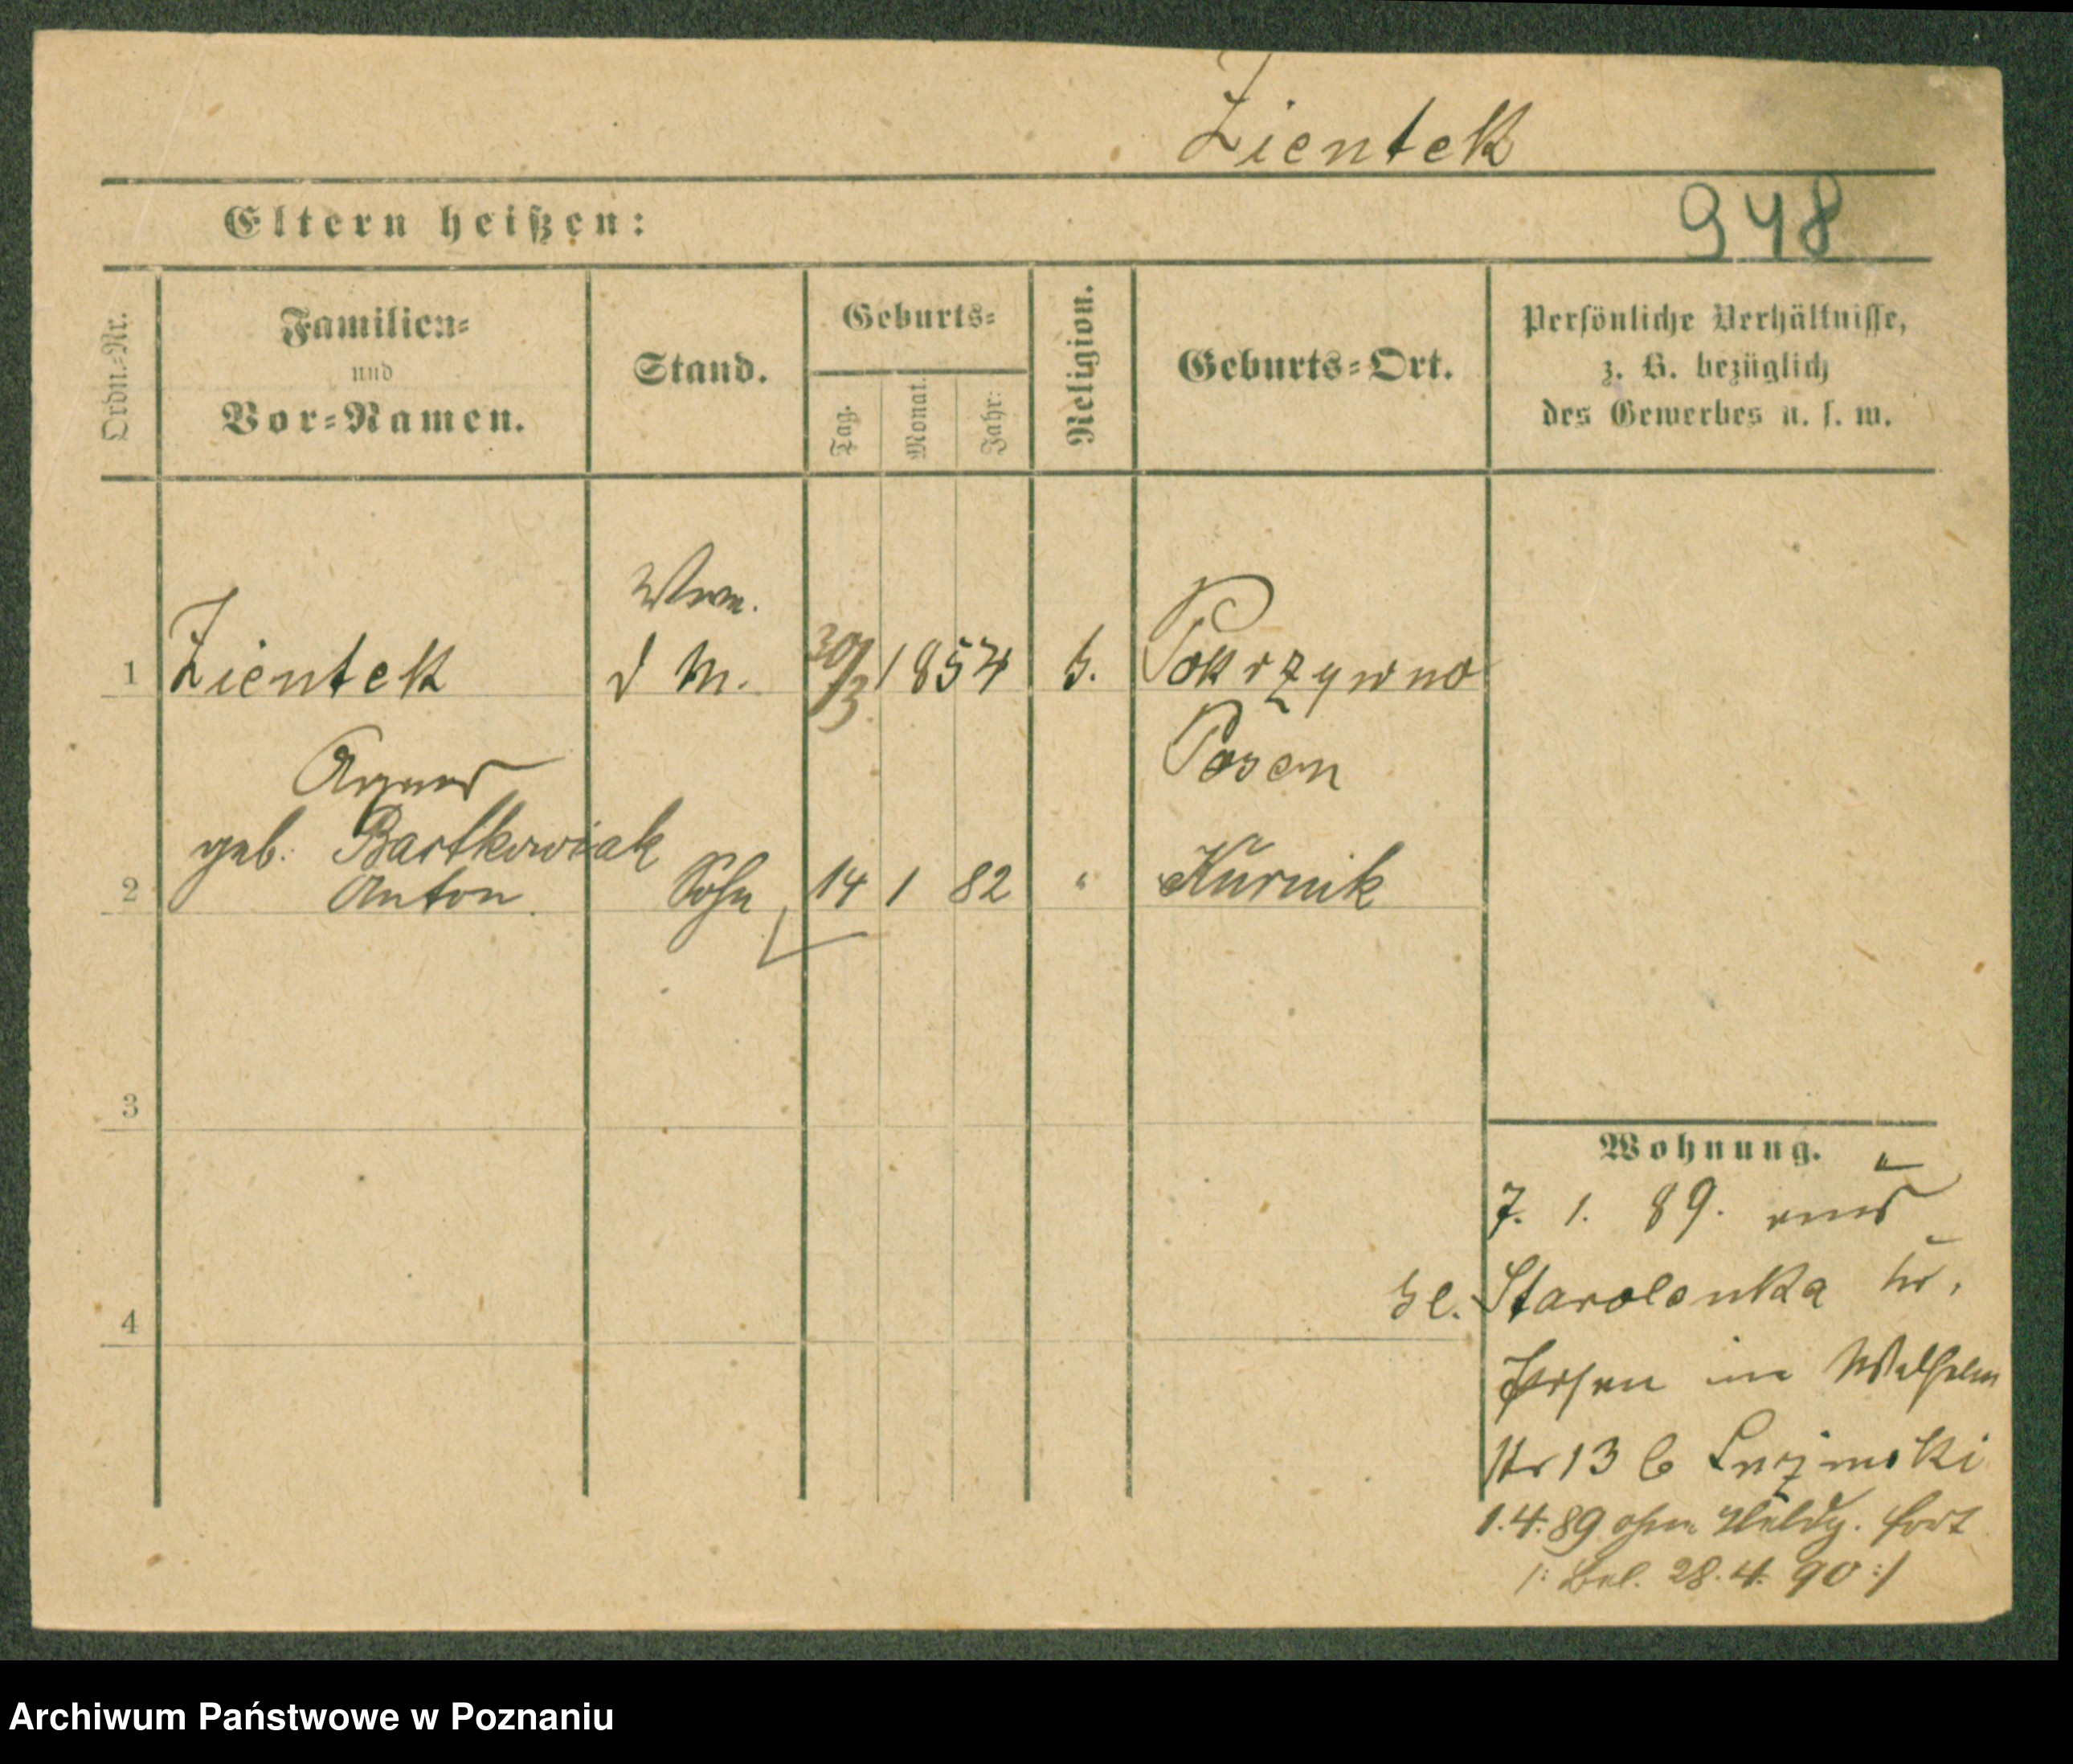 Zientek
Eltern heißen:
948
Ordn.-Nr.
Familien-
und
Vor-Namen.
Stand.
Geburts-
Tag.
Monat.
Jahr:
Religion.
Geburts-Ort.
Persönliche Verhältnisse,
z. B. bezüglich
des Gewerbes u. s. w.
Wwe.
1 Zientek d M. 30/3 1854 k. Pokrzywno
Agnes Posen
geb. Bartkowiak
2 Anton Sohn 14 1 82 " Kurnik
3
4
Wohnung.
7. 1. 89. aus
Kl. Starolenka Kr.
Posen in Wilhelm
Str 13 b
1.4.89 ohne Meldg. fort
/: Bel. 28.4.90 :/
Archiwum Państwowe w Poznaniu